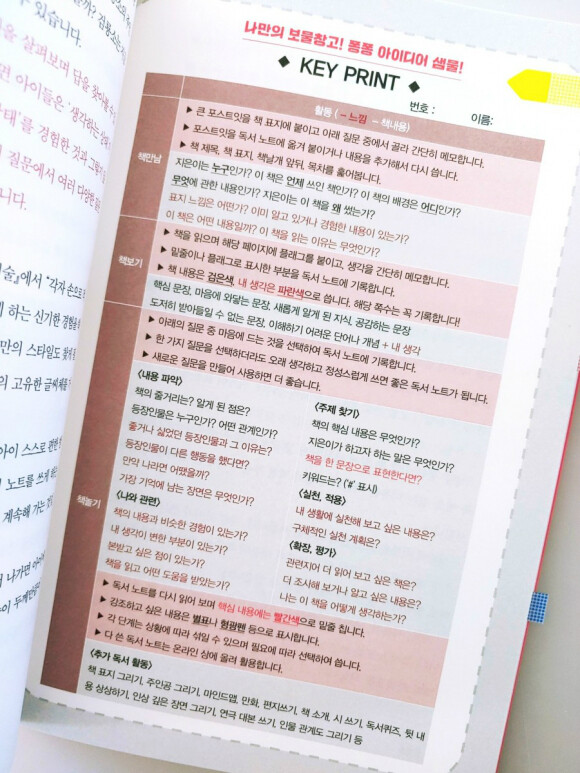 쓸까? 김종소는
수 있습니다.
을 살펴보며 답을 찾았을 수
면 아이들은 '생각하는 상
태'를 경험한 것과 그렇지
질문에서 여러 다양한
니다.
술』에서 "각자 손으로
게 하는 신기한 경험을
만의 스타일도
의 고유한 글씨체를
아이 스스로 편한
노트를 쓰게 하
계속해 가는 것
나가면 아이
이 두께만큼
나만의 보물창고! 퐁퐁 아이디어 샘물!
◆ KEY PRINT ◆
번호 : 이름:
활동 (– 느낌 – 책내용)
책만남
▶ 큰 포스트잇을 책 표지에 붙이고 아래 질문 중에서 골라 간단히 메모합니다.
▶ 포스트잇을 독서 노트에 옮겨 붙이거나 내용을 추가해서 다시 씁니다.
▶ 책 제목, 책 표지, 책날개 앞뒤, 목차를 훑어봅니다.
지은이는 누구인가? 이 책은 언제 쓰인 책인가? 이 책의 배경은 어디인가?
무엇에 관한 내용인가? 지은이는 이 책을 왜 썼는가?
표지 느낌은 어떤가? 이미 알고 있거나 경험한 내용이 있는가?
이 책은 어떤 내용일까? 이 책을 읽는 이유는 무엇인가?
책보기
▶ 책을 읽으며 해당 페이지에 플래그를 붙이고, 생각을 간단히 메모합니다.
▶ 밑줄이나 플래그로 표시한 부분을 독서 노트에 기록합니다.
▶ 책 내용은 검은색, 내 생각은 파란색으로 씁니다. 해당 쪽수는 꼭 기록합니다!
핵심 문장, 마음에 와닿는 문장, 새롭게 알게 된 지식, 공감하는 문장
도저히 받아들일 수 없는 문장, 이해하기 어려운 단어나 개념 + 내 생각
책놀기
▶ 아래의 질문 중 마음에 드는 것을 선택하여 독서 노트에 기록합니다.
▶ 한 가지 질문을 선택하더라도 오래 생각하고 정성스럽게 쓰면 좋은 독서 노트가 됩니다.
▶ 새로운 질문을 만들어 사용하면 더 좋습니다.
〈내용 파악〉
책의 줄거리는? 알게 된 점은?
등장인물은 누구인가? 어떤 관계인가?
좋거나 싫었던 등장인물과 그 이유는?
등장인물이 다른 행동을 했다면?
만약 나라면 어땠을까?
가장 기억에 남는 장면은 무엇인가?
〈나와 관련〉
책의 내용과 비슷한 경험이 있는가?
내 생각이 변한 부분이 있는가?
본받고 싶은 점이 있는가?
책을 읽고 어떤 도움을 받았는가?
〈주제 찾기〉
책의 핵심 내용은 무엇인가?
지은이가 하고자 하는 말은 무엇인가?
책을 한 문장으로 표현한다면?
키워드는? ('#' 표시)
〈실천, 적용〉
내 생활에 실천해 보고 싶은 내용은?
구체적인 실천 계획은?
〈확장, 평가〉
관련지어 더 읽어 보고 싶은 책은?
더 조사해 보거나 알고 싶은 내용은?
나는 이 책을 어떻게 생각하는가?
▶ 독서 노트를 다시 읽어 보며 핵심 내용에는 빨간색으로 밑줄 칩니다.
▶ 강조하고 싶은 내용은 별표나 형광펜 등으로 표시합니다.
▶ 각 단계는 상황에 따라 섞일 수 있으며 필요에 따라 선택하여 씁니다.
▶ 다 쓴 독서 노트는 온라인 상에 올려 활용합니다.
〈추가 독서 활동〉
책 표지 그리기, 주인공 그리기, 마인드맵, 만화, 편지쓰기, 책 소개, 시 쓰기, 독서퀴즈, 뒷 내
용 상상하기, 인상 깊은 장면 그리기, 연극 대본 쓰기, 인물 관계도 그리기 등